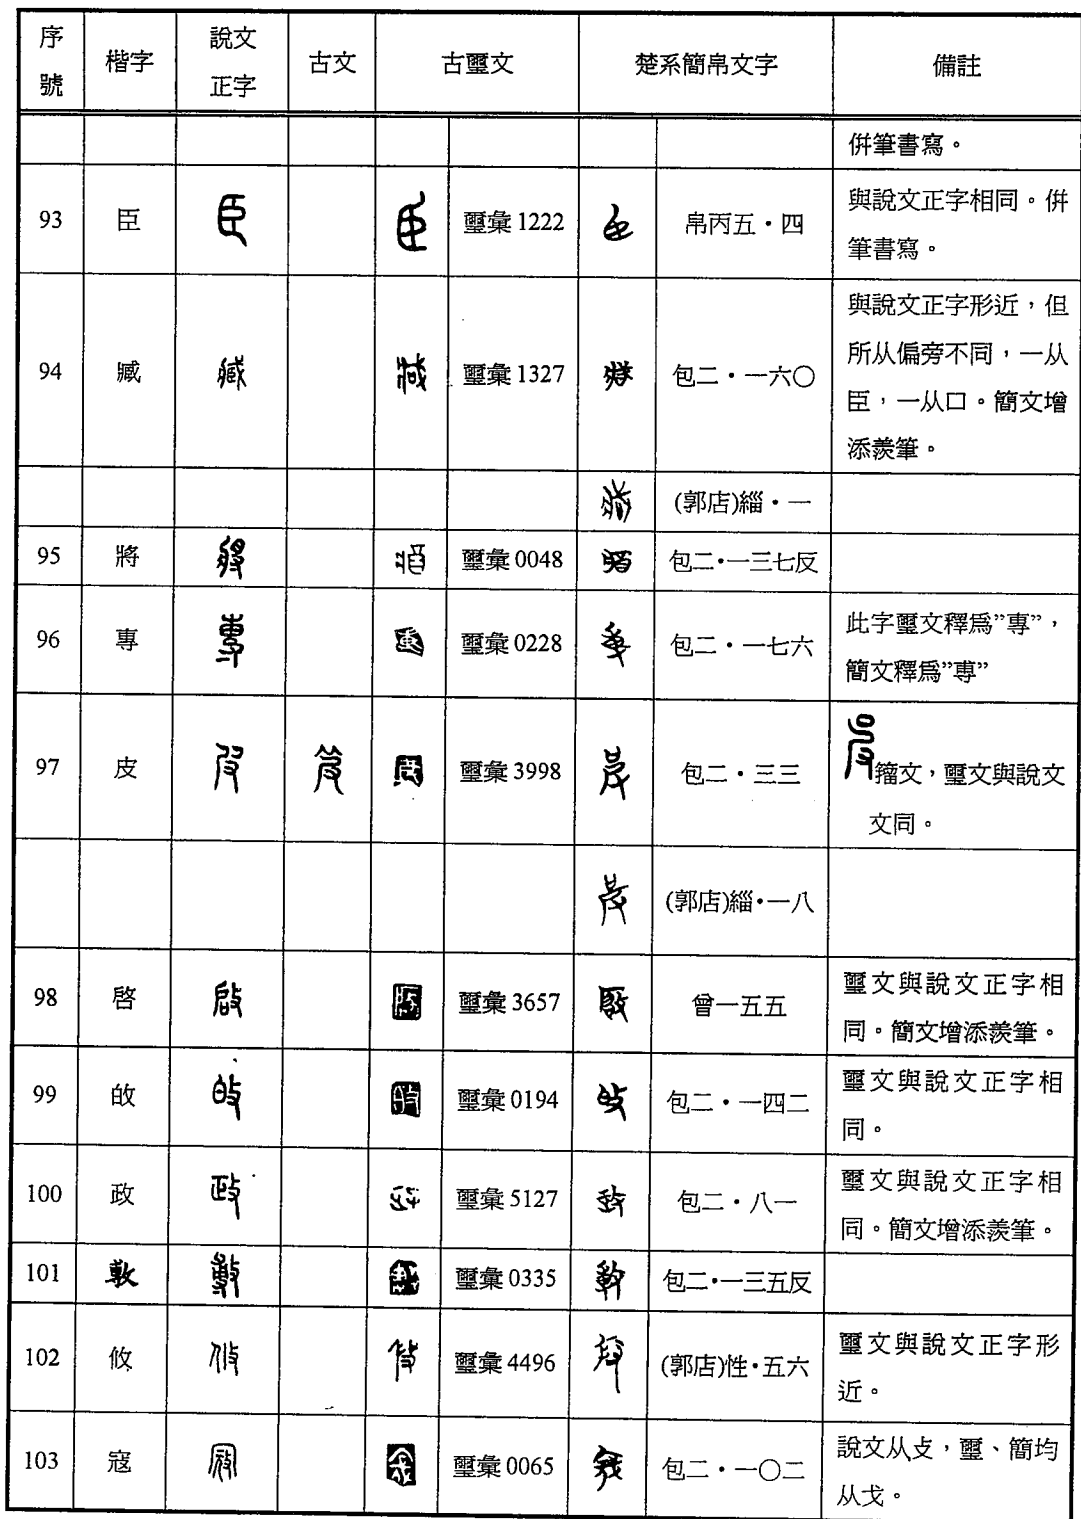 序號 楷字 說文正字 古文 古璽文 楚系簡帛文字 備註
併筆書寫。
93 臣 璽彙 1222 帛丙五·四 與說文正字相同。併
筆書寫。
94 臧 璽彙 1327 包二·一六〇 與說文正字形近，但
所从偏旁不同，一从
臣，一从口。簡文增
添羨筆。
(郭店)緇·一
95 將 璽彙 0048 包二·一三七反
96 專 璽彙 0228 包二·一七六 此字璽文釋爲”專”，
簡文釋爲”專”
97 皮 璽彙 3998 包二·三三 籀文，璽文與說文
文同。
(郭店)緇·一八
98 啓 璽彙 3657 曾一五五 璽文與說文正字相
同。簡文增添羨筆。
99 敀 璽彙 0194 包二·一四二 璽文與說文正字相
同。
100 政 璽彙 5127 包二·八一 璽文與說文正字相
同。簡文增添羨筆。
101 璽彙 0335 包二·一三五反
102 攸 璽彙 4496 (郭店)性·五六 璽文與說文正字形
近。
103 寇 璽彙 0065 包二·一〇二 說文从攴，璽、簡均
从戈。